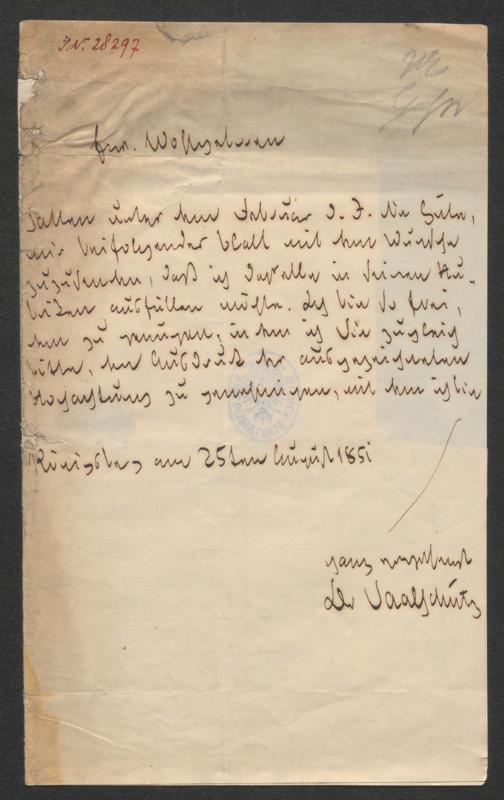 J.N. 28297
Ew. Wohlgeboren
hatten unter dem Februar d. J. die Güte,
mir beifolgendes Blatt mit dem Wunsche
zuzusenden, daß ich dasselbe in seinen Ru-
briken ausfüllen möchte. Ich bin so frei,
dem zu genügen, indem ich Sie zugleich
bitte, den Ausdruck der ausgezeichneten
Hochachtung zu genehmigen, mit dem ich bin
Königsberg am 25ten August 1851
ganz ergebenst
Dr Saalschütz